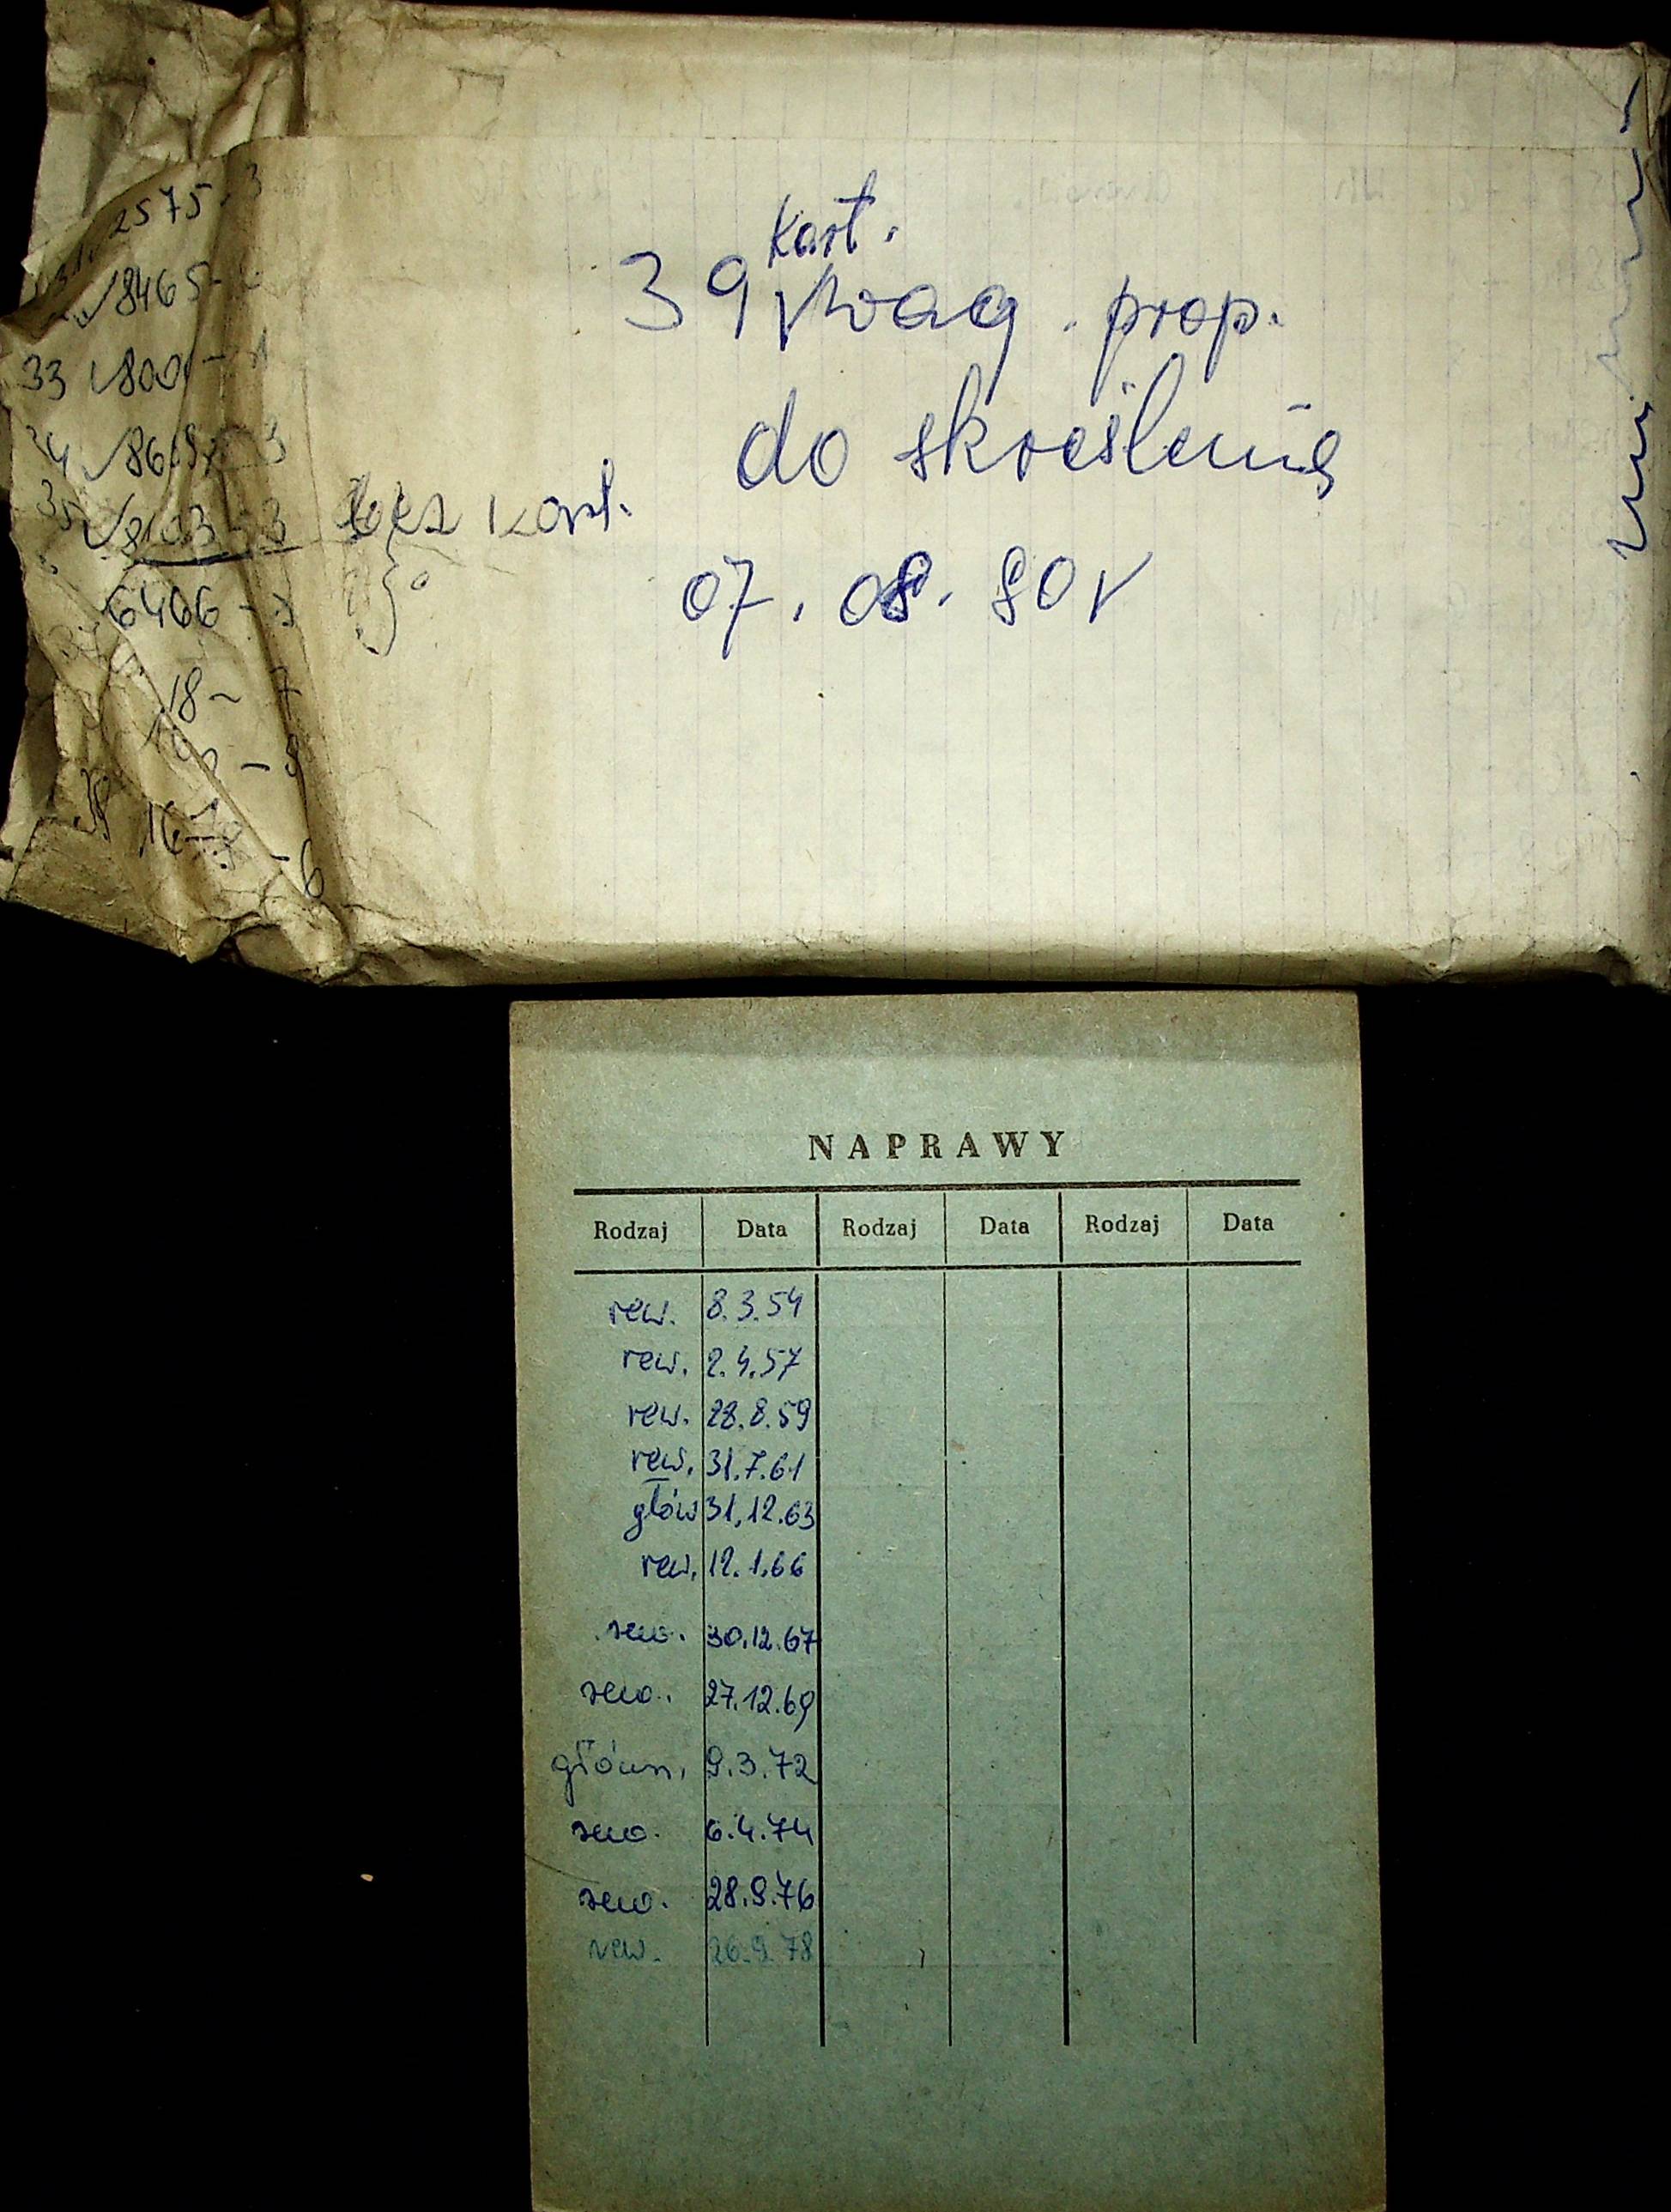 39 kart. wag. prop.
do skreślenia
07.08.80 r
bez kart.
2575-3
8465-
33 800 -
34
35 8103-3
6466-
18-
NAPRAWY
Rodzaj Data Rodzaj Data Rodzaj Data
rew. 8.3.54
rew. 2.4.57
rew. 28.8.59
rew. 31.7.61
głów 31.12.63
rew. 12.1.66
rew. 30.12.67
rew. 27.12.69
główn. 9.3.72
rew. 6.4.74
rew. 28.9.76
rew. 26.9.78